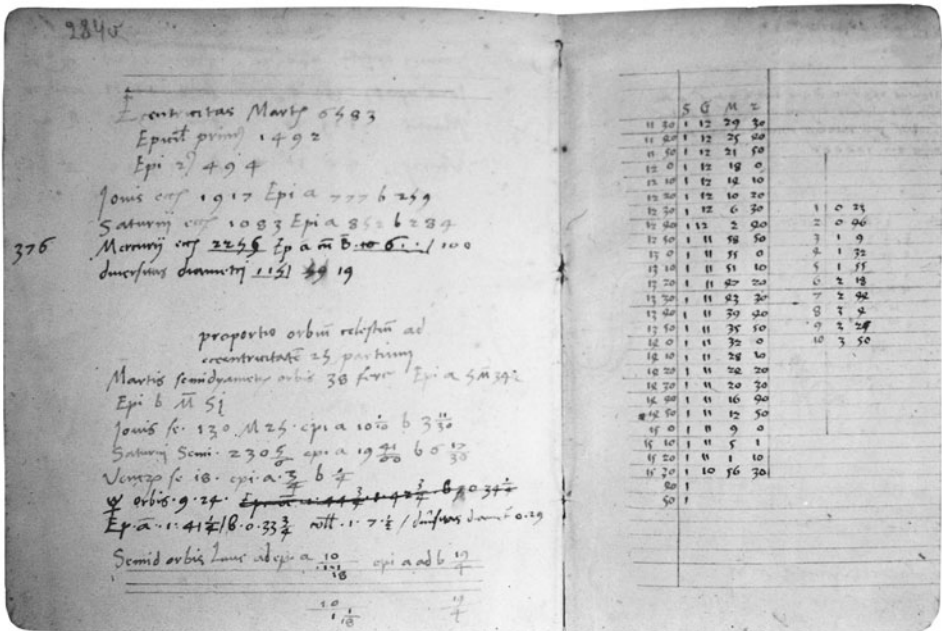 284v
Eccentricitas Martis 6583
Epicicli primi 1492
Epi 2 494
Jovis ecc 1917 Epi a 777 b 259
Saturni ecc 1083 Epi a 852 b 284
376 Mercurij ecc 2256 Ep a 6 / 100
diversitas diametri 19
proportio orbium celestium ad
eccentricitatem 25 partium
Martis semidyameter orbis 38 fere Epi a 5 M 34
Epi b M 51
Jovis se. 130 M 25. epi a 10 b 3 11/30
Saturni Semi. 230 5/6 epi a 19 41/60 b 6 17/30
Veneris se 18. epi. a. 3/4 b 1/4
☿ orbis. 9. 24.
Ep. a. 1. 41 1/4 / B. 0. 33 3/4 coll. 1. 7. 1/2 / diversitas diametri 0. 29
Semid orbis Lune ad epi a 10 / 1 1/18 epi a ad b 19/4
10 / 1 1/18 19/4
S G M 2
11 30 1 12 29 30
11 40 1 12 25 40
11 50 1 12 21 50
12 0 1 12 18 0
12 10 1 12 14 10
12 20 1 12 10 20
12 30 1 12 6 30
12 40 1 12 2 40
12 50 1 11 58 50
13 0 1 11 55 0
13 10 1 11 51 10
13 20 1 11 47 20
13 30 1 11 43 30
13 40 1 11 39 40
13 50 1 11 35 50
14 0 1 11 32 0
14 10 1 11 28 10
14 20 1 11 24 20
14 30 1 11 20 30
14 40 1 11 16 40
14 50 1 11 12 50
15 0 1 11 9 0
15 10 1 11 5 1
15 20 1 11 1 10
15 30 1 10 56 30
40 1
50 1
1 0 23
2 0 46
3 1 9
4 1 32
5 1 55
6 2 18
7 2 42
8 3 4
9 3 27
10 3 50